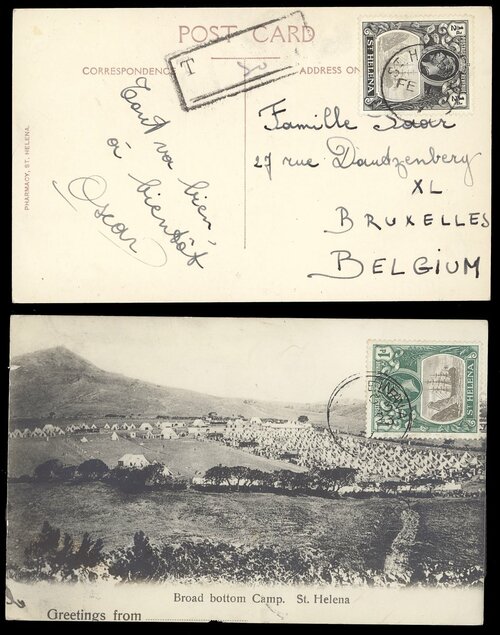 POST CARD
CORRESPONDENC
ADDRESS ON
T
½d
ST HELENA
PHARMACY, ST. HELENA.
Tout va bien
à bientôt
Oscar
Famille Saar
27 rue Dautzenberg
XL
BRUXELLES
BELGIUM
1d
ST HELENA
Broad bottom Camp. St. Helena
Greetings from